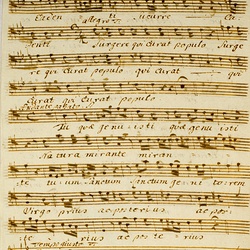 Allegro
Surgere qui Curat populo Surge
re qui Curat populo qui Curat qui
Curat qui Curat populo
Tu quæ genu isti quæ genu isti
Natura mirante miran
te tuum Sanctum Sanctum genitorem
Virgo prius ac posterius, ac post
rius ac poste rius